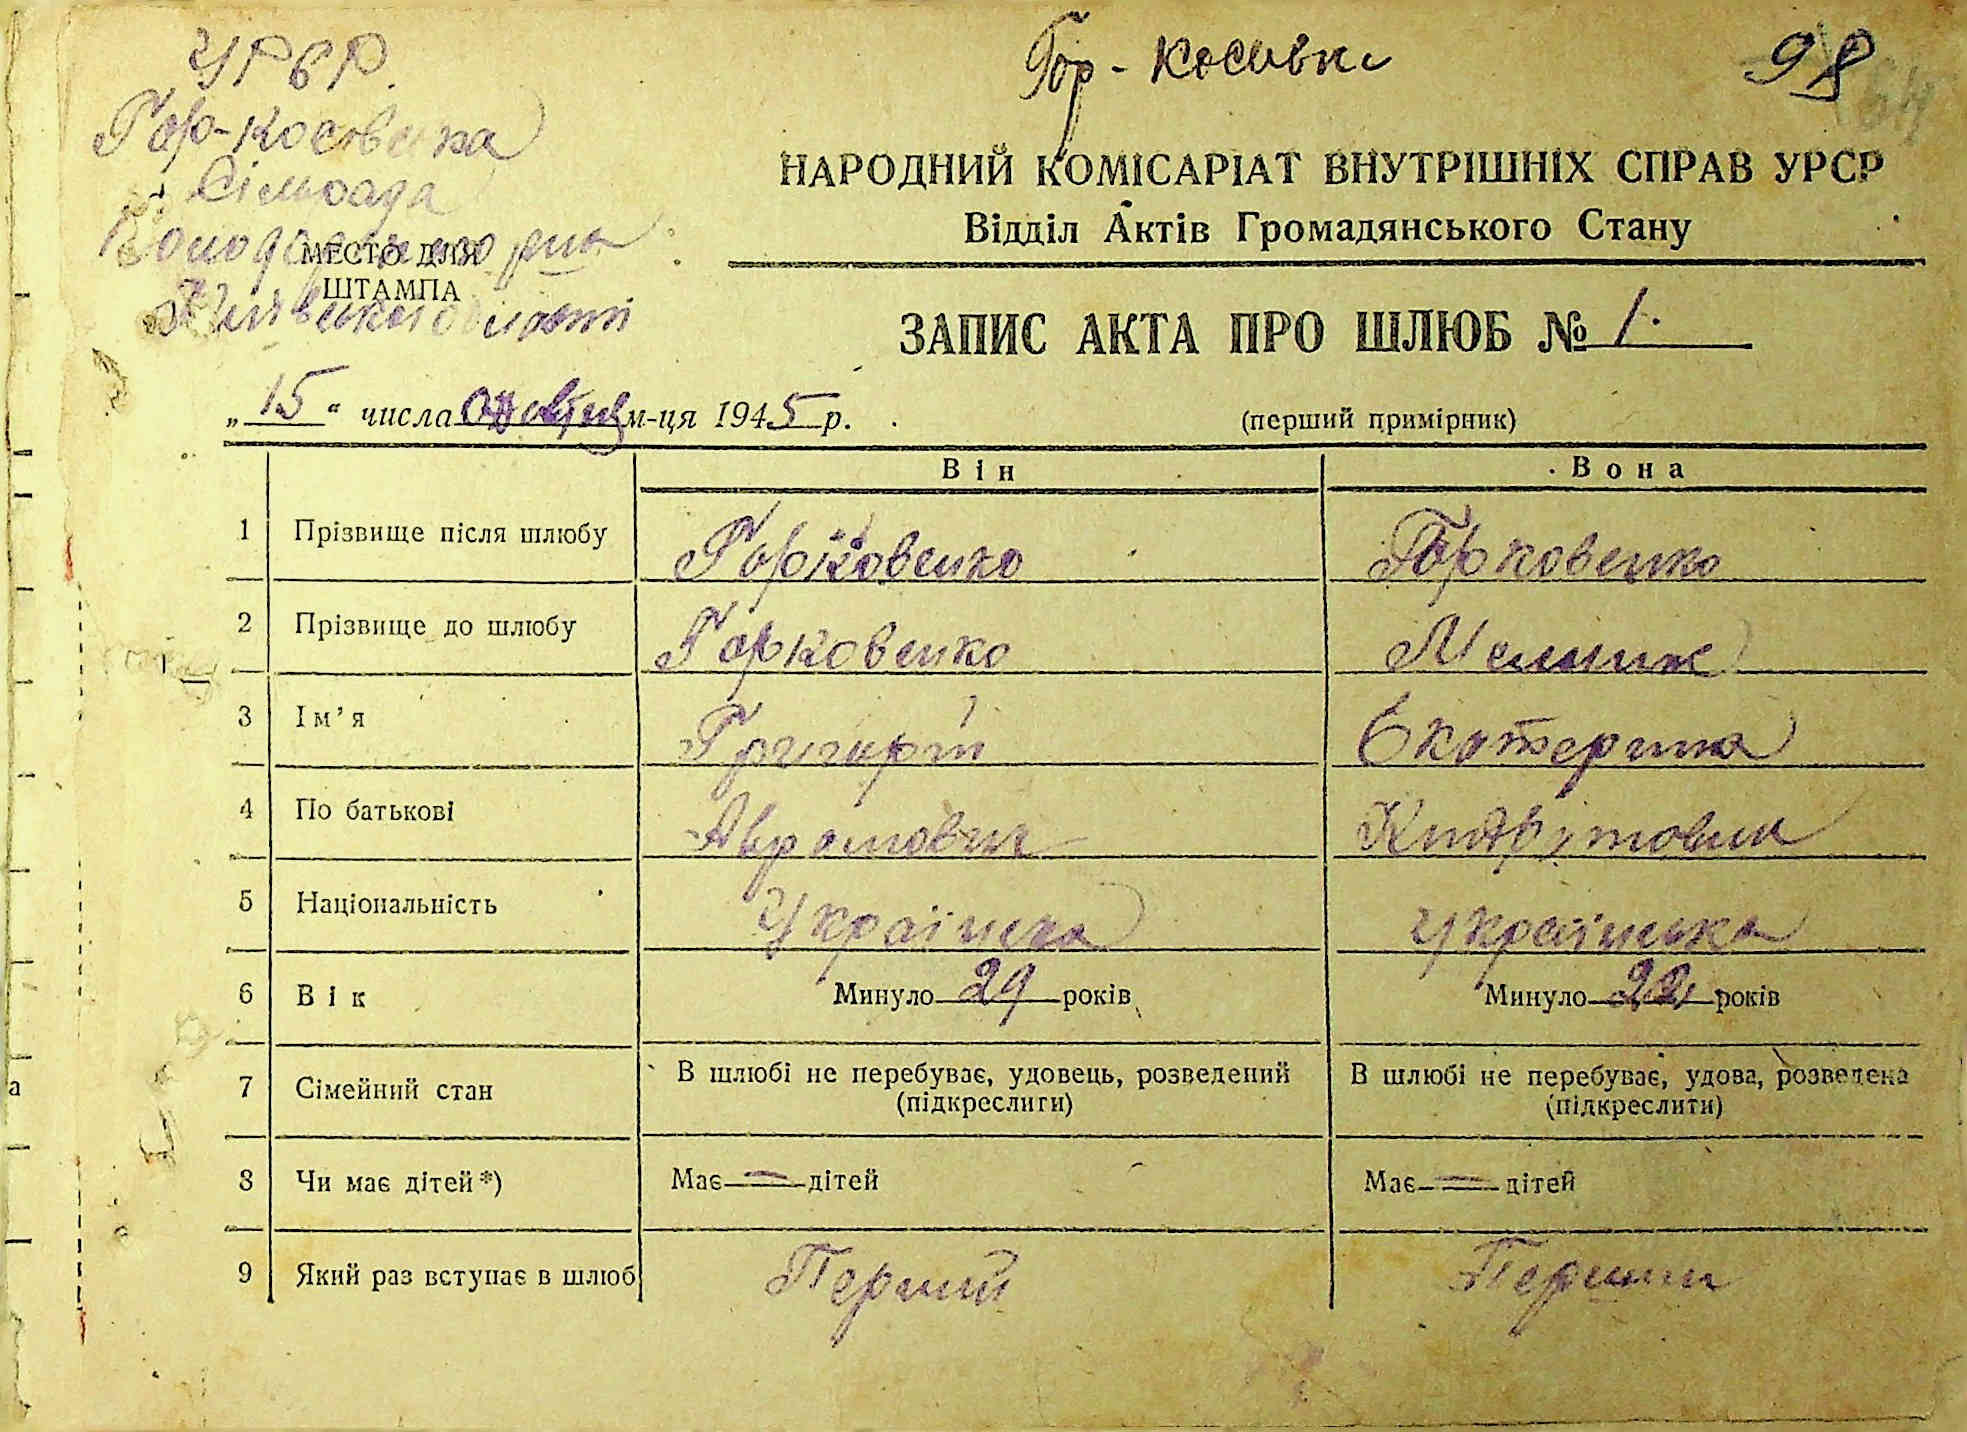 УРСР.
Гор-Косовка
98
Гор-Косовська
64
Сільрада
НАРОДНИЙ КОМІСАРІАТ ВНУТРІШНІХ СПРАВ УРСР
Відділ Актів Громадянського Стану
Володарського р-ну
МЕСТО ДЛЯ
ШТАМПА
Київської області
ЗАПИС АКТА ПРО ШЛЮБ № 1.
„15“ числа м-ця 1945 р.
(перший примірник)
Він Вона
1 Прізвище після шлюбу Горковенко Горковенко
2 Прізвище до шлюбу Горковенко Мельник
3 Ім’я Григорій Екатерина
4 По батькові Аврамович
5 Національність Українець Українська
6 Вік Минуло 29 років Минуло 22 років
7 Сімейний стан В шлюбі не перебуває, удовець, розведений В шлюбі не перебуває, удова, розведена
(підкреслити) (підкреслити)
8 Чи має дітей *) Має — дітей Має — дітей
9 Який раз вступає в шлюб Перший Перший